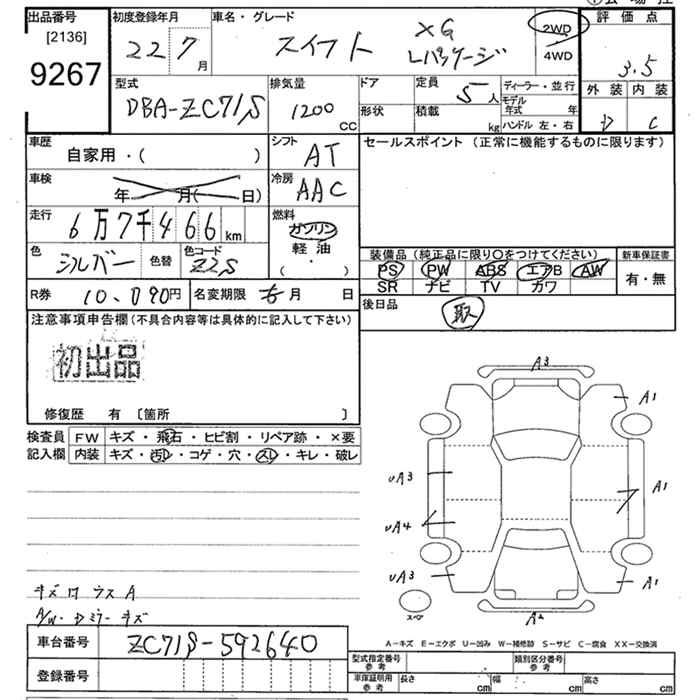 出品番号
[2136]
9267
初度登録年月
22 7 月
車名・グレード
スイフト XG Lパッケージ
2WD
4WD
評価点
3.5
外装 内装
D C
型式
DBA-ZC71S
排気量
1200 CC
ドア
形状
定員
5人
積載
kg
ディーラー・並行
モデル年式 年
ハンドル 左・右
車歴
自家用・( )
シフト
AT
セールスポイント (正常に機能するものに限ります)
車検
年 月( 日)
冷房
AAC
走行
6万7千466 km
燃料
ガソリン
軽油
・
( )
色
シルバー
色替
色コード
Z2S
装備品 (純正品に限り○をつけてください)
PS PW ABS エアB AW
SR ナビ TV カワ
新車保証書
有・無
R券
10,090円
名変期限 月 日
後日品
取
注意事項申告欄(不具合内容等は具体的に記入して下さい)
初出品
修復歴 有 〔箇所 〕
検査員記入欄
FW キズ・飛石・ヒビ割・リペア跡・×要
内装 キズ・汚レ・コゲ・穴・スレ・キレ・破レ
A3
A1
UA3
A1
UA4
UA3
A1
スペア
A2
キズ
A/W・Dミラーキズ
A-キズ E-エクボ U-凹み W-補修跡 S-サビ C-腐食 XX-交換済
車台番号
ZC71S-592640
登録番号
型式指定番号
参考
類別区分番号
参考
車庫証明用
参考
長さ cm 幅 cm 高さ cm